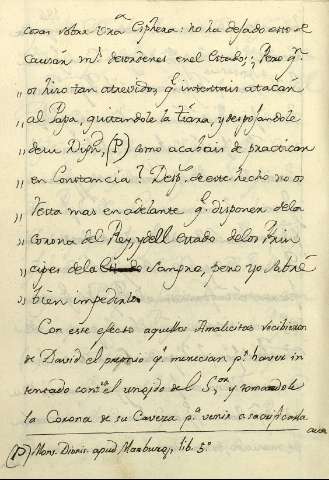 cosas sobre una Esphera: no ha dejado esto de
causar m.s desordenes en el Estado; Pero q.n
„ os hizo tan atrevidos q.e intentais atacar
„ al Papa, quitandole la tiara, y despojandole
„ de su Diph, (P) como acabais de practicar
„ en Constancia? Desp.s de este hecho no os
„ resta mas en adelante q.e disponer de la
„ corona del Rey, y del Estado de los Prin
„ cipes de la Sangre, pero yo sabré
„ bien impedirlo.
Con este efecto aquellos Amalicitas recibieron
de David el premio q.e merecian p.r haver in
tentado cont.a el ungido del S.or y tomandole
la Corona de su Caveza p.a venir a sacrificarla
(P) Mons. Dionis. apud Marburg, lib. 5°